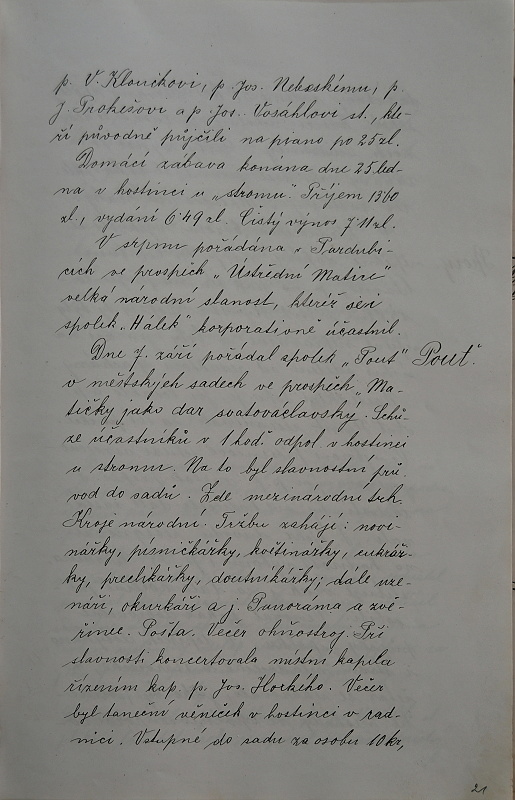 p. V. Kloučkovi, p. Jos. Nebeskému, p.
J. Prokešovi a p. Jos. Vosáhlovi st., kte-
ří původně půjčili na piano po 25 zl.
Domácí zábava konána dne 25. led-
na v hostinci u „stromu“. Příjem 13·60
zl., vydání 6·49 zl. Čistý výnos 7·11 zl.
V srpnu pořádána v Pardubi-
cích ve prospěch „Ústřední Matice“
velká národní slavnost, kteréž se i
spolek „Hálek“ korporativně účastnil.
Dne 7. září pořádal spolek „Pouť“ Pouť.
v městských sadech ve prospěch „Ma-
tičky jako dar svatováclavský. Schů-
ze účastníků v 1 hod. odpol v hostinci
u stromu. Na to byl slavnostní prů-
vod do sadů. Zde mezinárodní trh.
Kroje národní. Tržbu zahájí: novi-
nářky, písničkářky, květinářky, cukrář-
ky, preclíkářky, doutníkářky; dále uze-
náři, okurkáři a j. Panoráma a zvě-
řinec. Pošta. Večer ohňostroj. Při
slavnosti koncertovala místní kapela
řízením kap. p. Jos. Horkého. Večer
byl taneční věneček v hostinci v rad-
nici. Vstupné do sadu za osobu 10 kr,
21